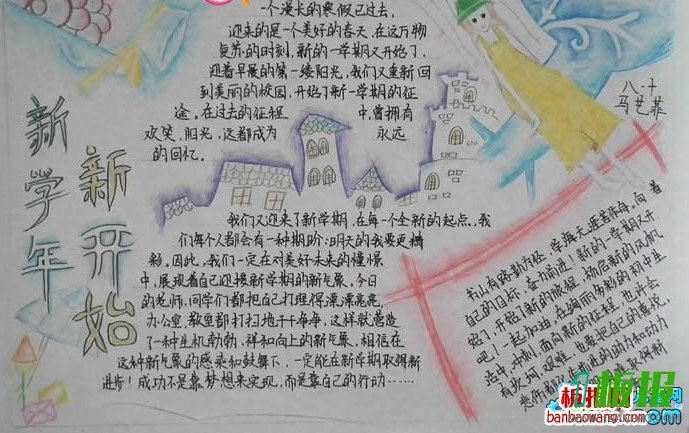 新学年
新开始
一个漫长的寒假已过去，
迎来的是一个美好的春天，在这万物
复苏的时刻，新的一学期又开始了，
迎着早晨的第一缕阳光，我们又重新回
到美丽的校园，开始了新一学期的征
途，在过去的征程中曾拥有
欢笑、阳光，这都成为永远
的回忆。
八.十
马艺菲
我们又迎来了新学期，在每一个全新的起点，我
们每个人都会有一种期盼：明天的我要更精
彩，因此，我们一定在对美好未来的憧憬
中，展现着自己迎接新学期的新气象，今日
的老师、同学们都把自己打理得漂漂亮亮，
办公室、教室都打扫地干干净净，这样就营造
了一种生机勃勃，祥和向上的新气象，相信在
这种新气象的感染和鼓舞下，一定能在新学期取得新
进步！成功不是靠梦想来实现，而是靠自己的行动……
书山有路勤为径，学海无涯苦作舟，向着
自己的目标，奋力前进，新的一学期又开
始了，开始了新的旅程，扬起新的风帆
吧！一起加油，在绚丽多彩的初中生
活中，冲刺，面向新的征程，也许会
有坎坷、艰难，也要把自己的喜悦，
进的动力和动力
取得新
板报
板报网
banbaowang.com